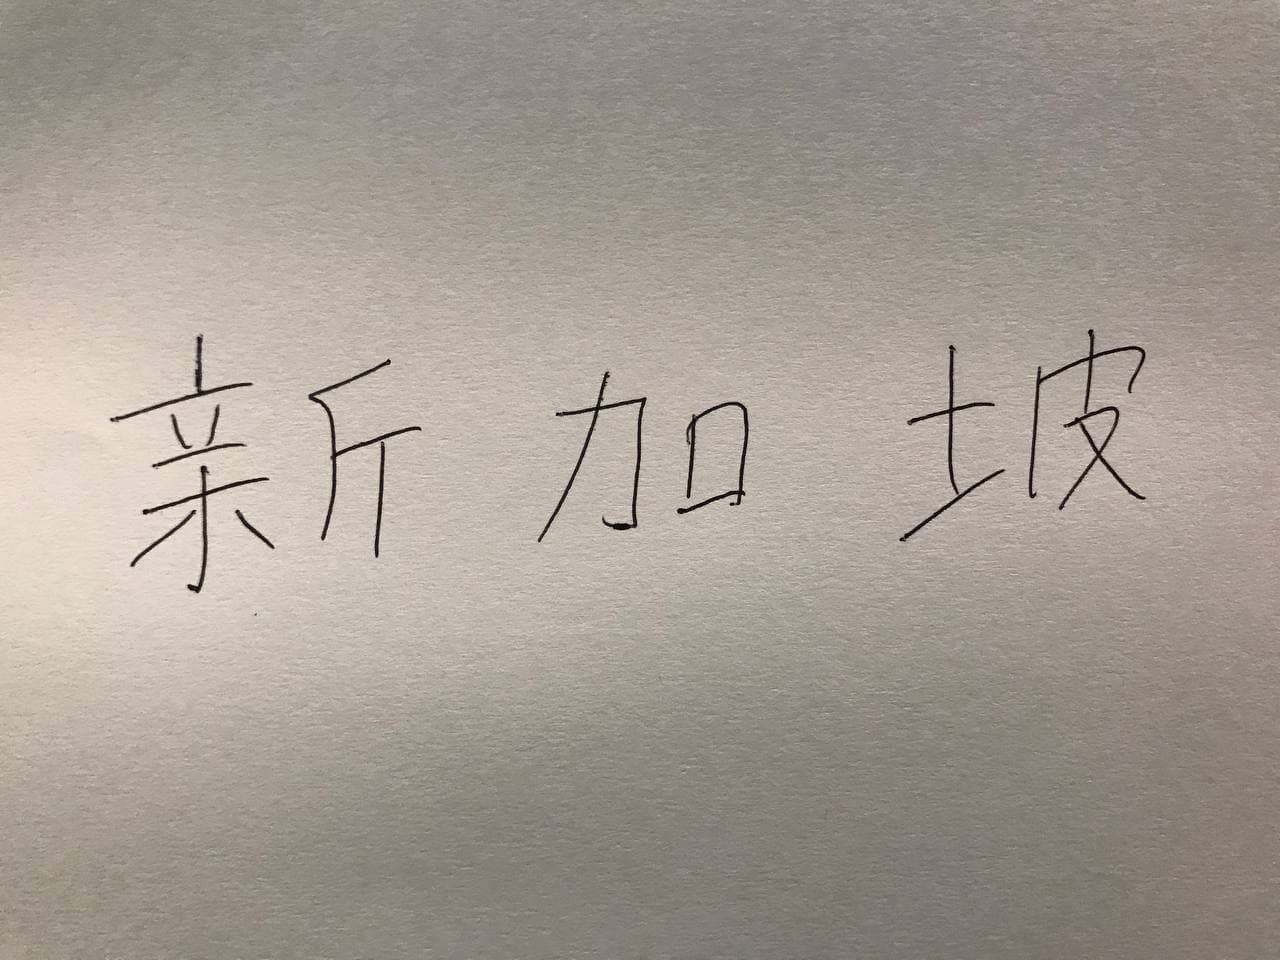 新加坡